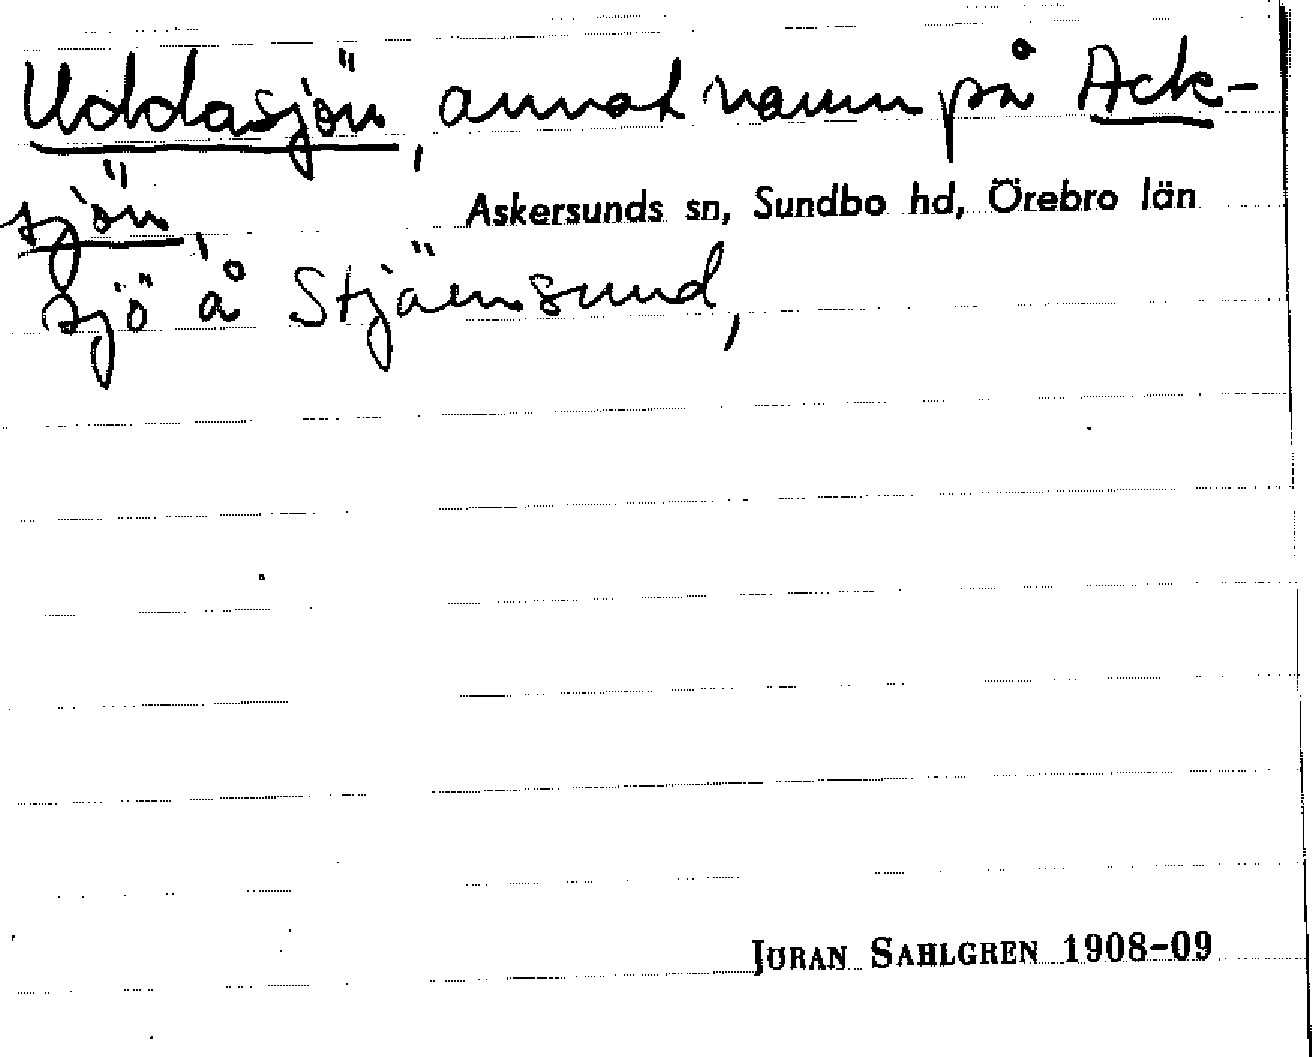 Uddasjön, annat namn på Ack-
sjön,
Askersunds sn, Sundbo hd, Örebro län
sjö å Stjärnsund,
JÖRAN SAHLGREN 1908-09